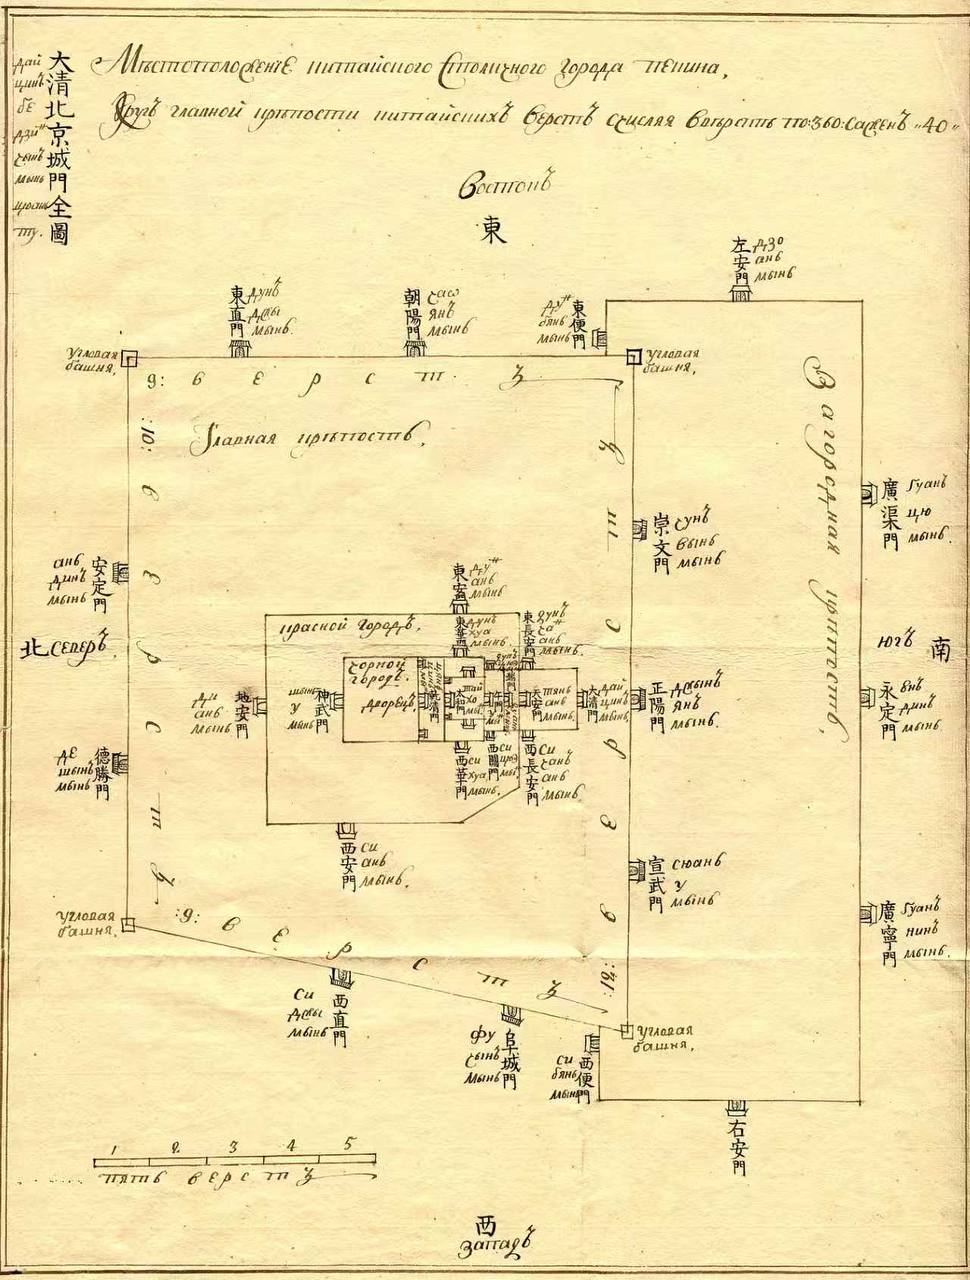 大清北京城門全圖
дай
цинъ
бе
дзи
чынъ
мынь
цюань
ту.
Мѣстоположенiе китайского Столичного города Пекина,
Кругъ главной крѣпости китайскихъ верстъ щисляя въ верстѣ по:360:саженъ „40„
Востокъ
東
左安門
дзо
ань
мынь
東直門
дунъ
джы
мынь.
朝陽門
чао
янъ
мынь.
東便門
дун
бянь
мынь
Угловая
башня,
Угловая
башня.
9: верстъ
Главная крѣпость,
:10: верстъ
Загородная крѣпость,
廣渠門
гуанъ
цю
мынь.
崇文門
чунъ
вынь
мынь
安定門
ань
динъ
мынь
東安門
дун
ань
мынь
красной городъ,
東華門
дунъ
хуа
мынь.
東長安門
дунъ
чан
ань
мынь
北
Северъ.
югъ
南
чорной
городъ.
дворецъ
地安門
ди
ань
мынь.
神武門
шынь
у
мынь
乾清門
太和門
тай
хо
мы
午門
天安門
тянь
ань
мынь.
大清門
дай
цинъ
мынь
正陽門
джынъ
янъ
мынь.
永定門
юнъ
динъ
мынь.
德勝門
де
шынъ
мынь
西華門
си
хуа
мынь.
西闕門
си
цюэ
西長安門
си
чанъ
ань
мынь.
西安門
си
ань
мынь.
宣武門
сюань
у
мынь
廣寧門
гуанъ
нинъ
мынь.
Угловая
башня.
:9: верстъ
:12: верстъ
西直門
си
джы
мынь
阜城門
фу
чынъ
мынь
西便門
си
бянь
мынь
Угловая
башня,
右安門
1 2 3 4 5
пять верстъ
西
Западъ